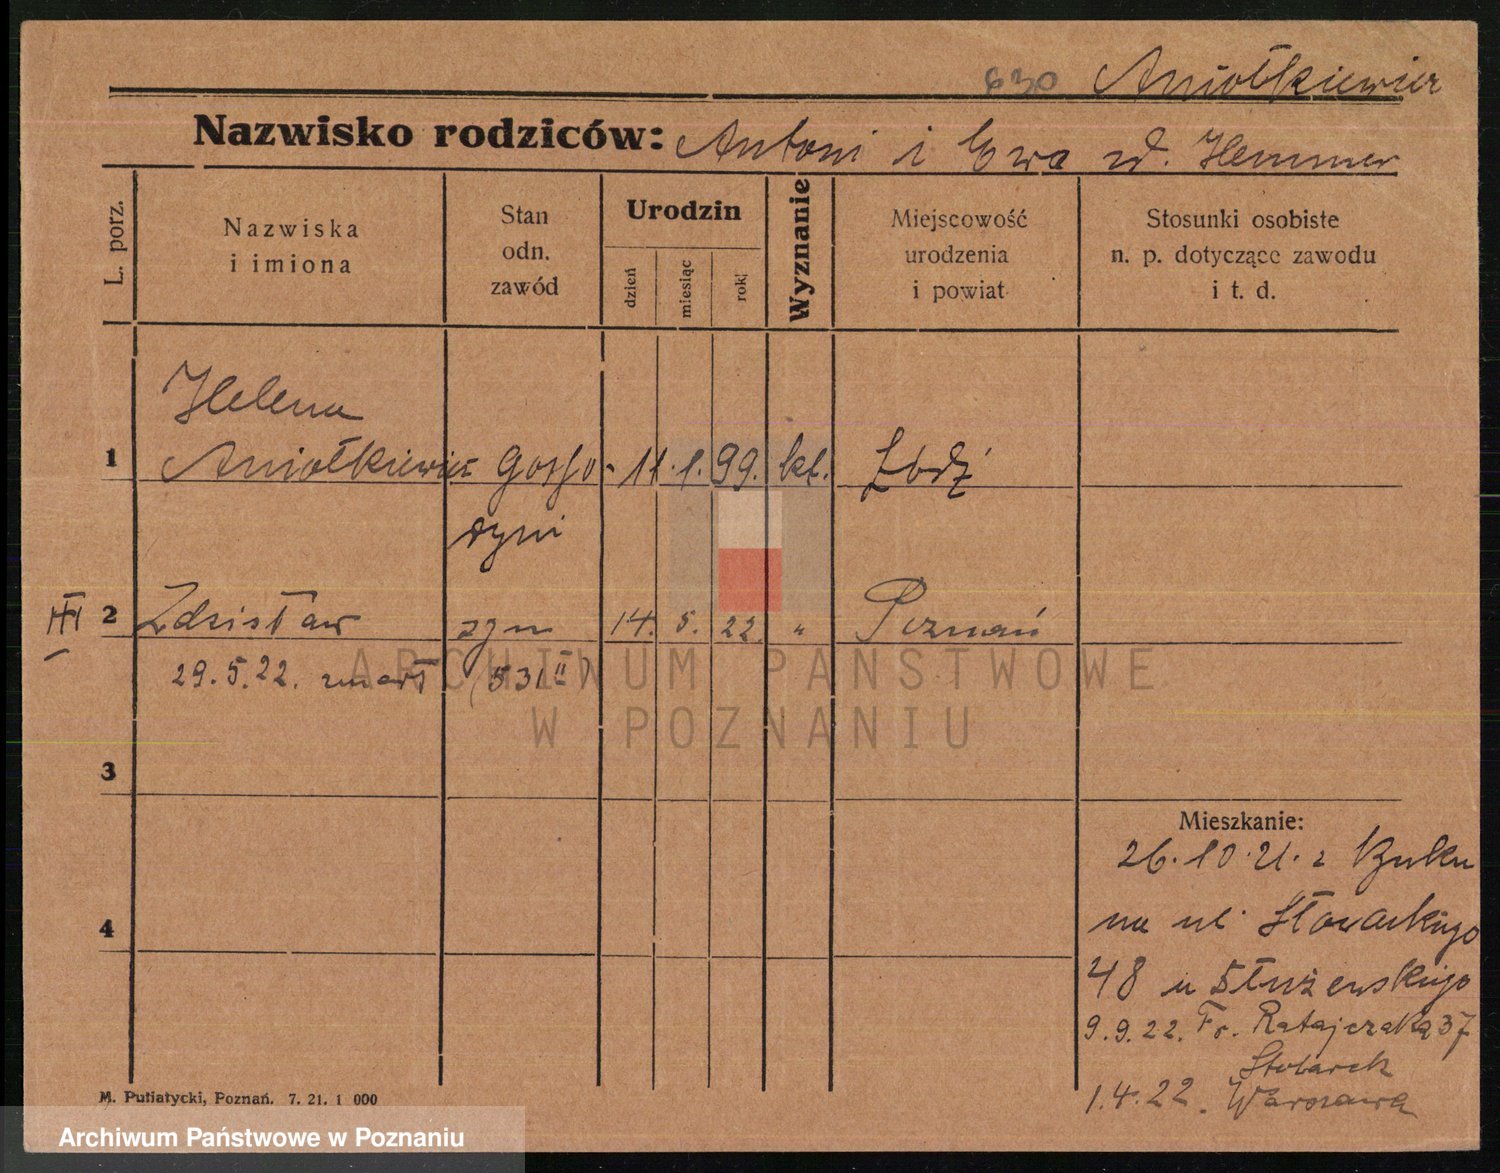 630 Aniołkiewicz
Nazwisko rodziców: Antoni i Ewa zd. Hemmer
L. porz.
Nazwiska
i imiona
Stan
odn.
zawód
Urodzin
dzień
miesiąc
rok
Wyznanie
Miejscowość
urodzenia
i powiat
Stosunki osobiste
n. p. dotyczące zawodu
i t. d.
Helena
1 Aniołkiewicz Gospo- 11. 1. 99. kt. Łódź
dyni
III 2 Zdzisław syn 14. 5. 22. " Poznań
29.5.22. zmarł (531 II)
ARCHIWUM PAŃSTWOWE
W POZNANIU
3
Mieszkanie:
26.10.21. z Buku
na ul Słowackiego
4
48 u Służewskiego
9.9.22. Fr. Ratajczaka 37
Stolarek
1.4.22. Warszawa
M. Putiatycki, Poznań. 7. 21. 1 000
Archiwum Państwowe w Poznaniu